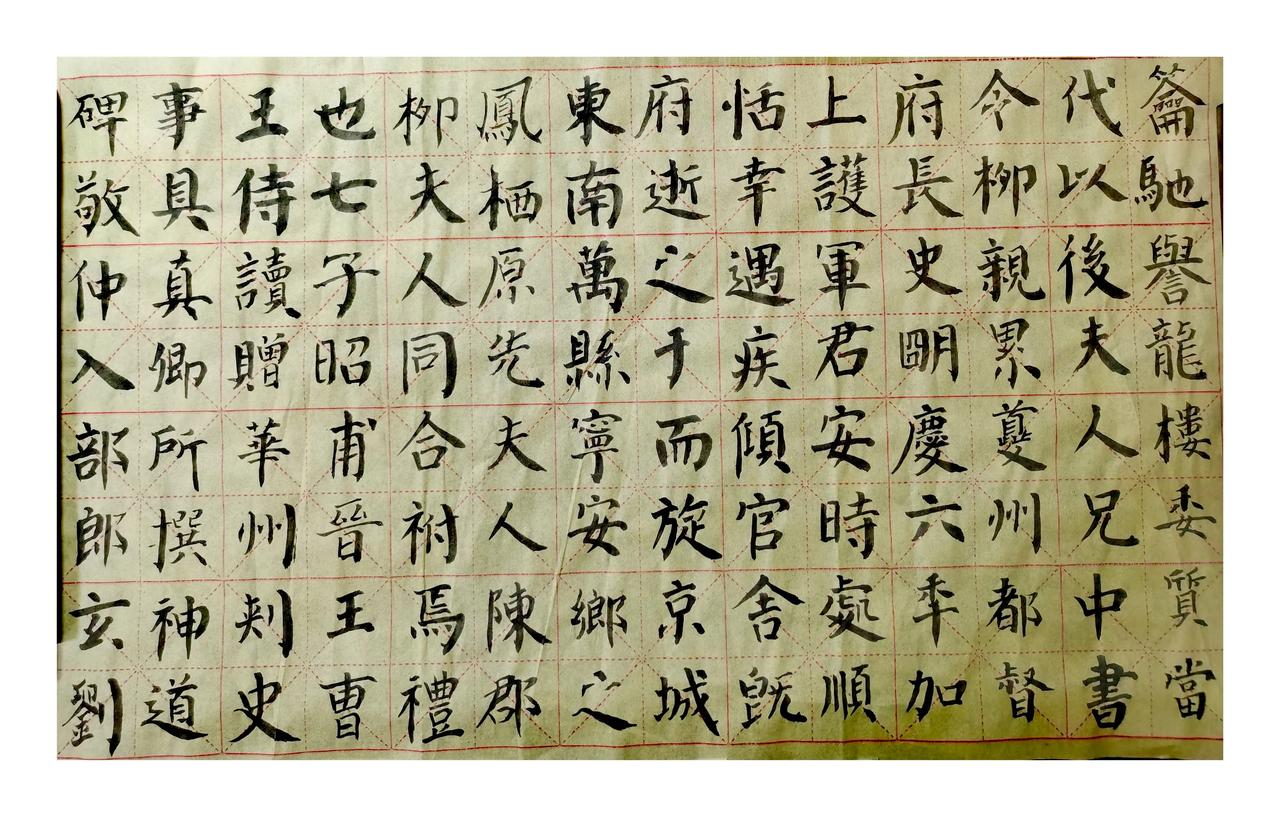 籥馳譽龍樓委質當
代以後夫人兄中書
令柳親累夔州都督
府長史明慶六年加
上護軍君安時處順
恬幸遇疾傾官舍既
府逝之于而旋京城
東南萬縣寧安鄉之
鳳栖原先夫人陳郡
柳夫人同合祔焉禮
也七子昭甫晉王曹
王侍讀贈華州刺史
事具真卿所撰神道
碑敬仲入部郎玄劉